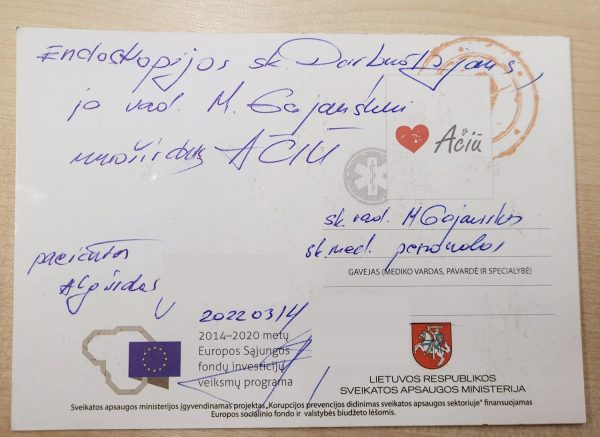 Endoskopijos sk. Darbuotojams,
jo vad. M. Gajauskui
nuoširdus AČIŪ
Ačiū
sk. vad. M Gajauskas
sk. med. personalas
GAVĖJAS (MEDIKO VARDAS, PAVARDĖ IR SPECIALYBĖ)
pacientas
Algirdas
20220314
2014–2020 metų
Europos Sąjungos
fondų investicijų
veiksmų programa
LIETUVOS RESPUBLIKOS
SVEIKATOS APSAUGOS MINISTERIJA
Sveikatos apsaugos ministerijos įgyvendinamas projektas „Korupcijos prevencijos didinimas sveikatos apsaugos sektoriuje" finansuojamas
Europos socialinio fondo ir valstybės biudžeto lėšomis.